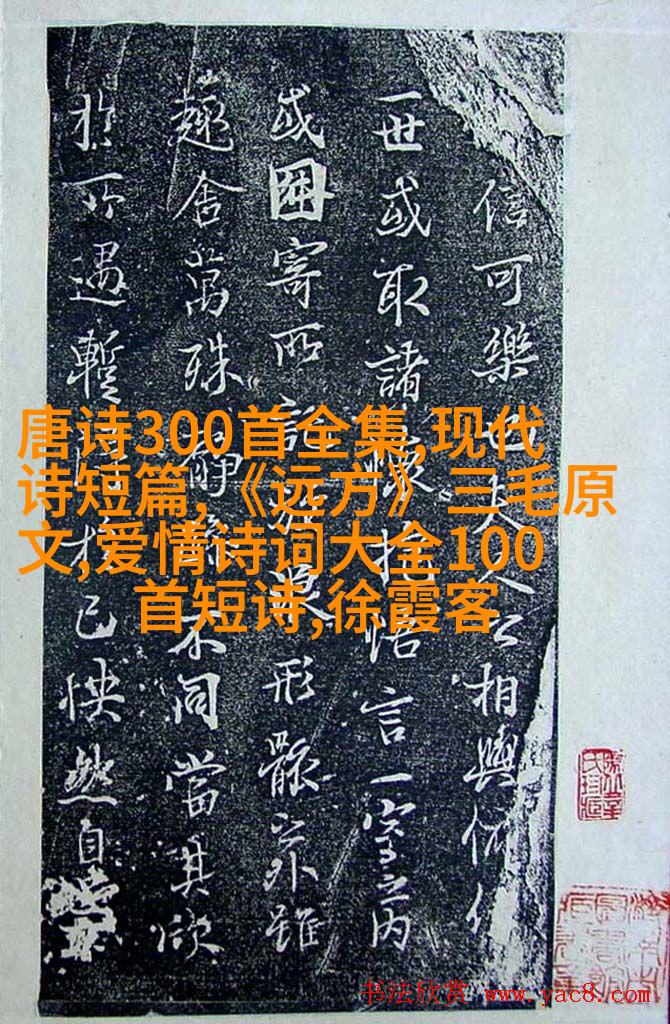 信可樂也夫人之相與俯仰
一世或取諸懷抱悟言一室之內
或因寄所託放浪形骸之外雖
趣舍萬殊靜躁不同當其欣
於所遇暫得於己怏然自
唐诗300首全集,现代
诗短篇,《远方》三毛原
文,爱情诗词大全100
首短诗,徐霞客
书法欣赏 www.yac8.com